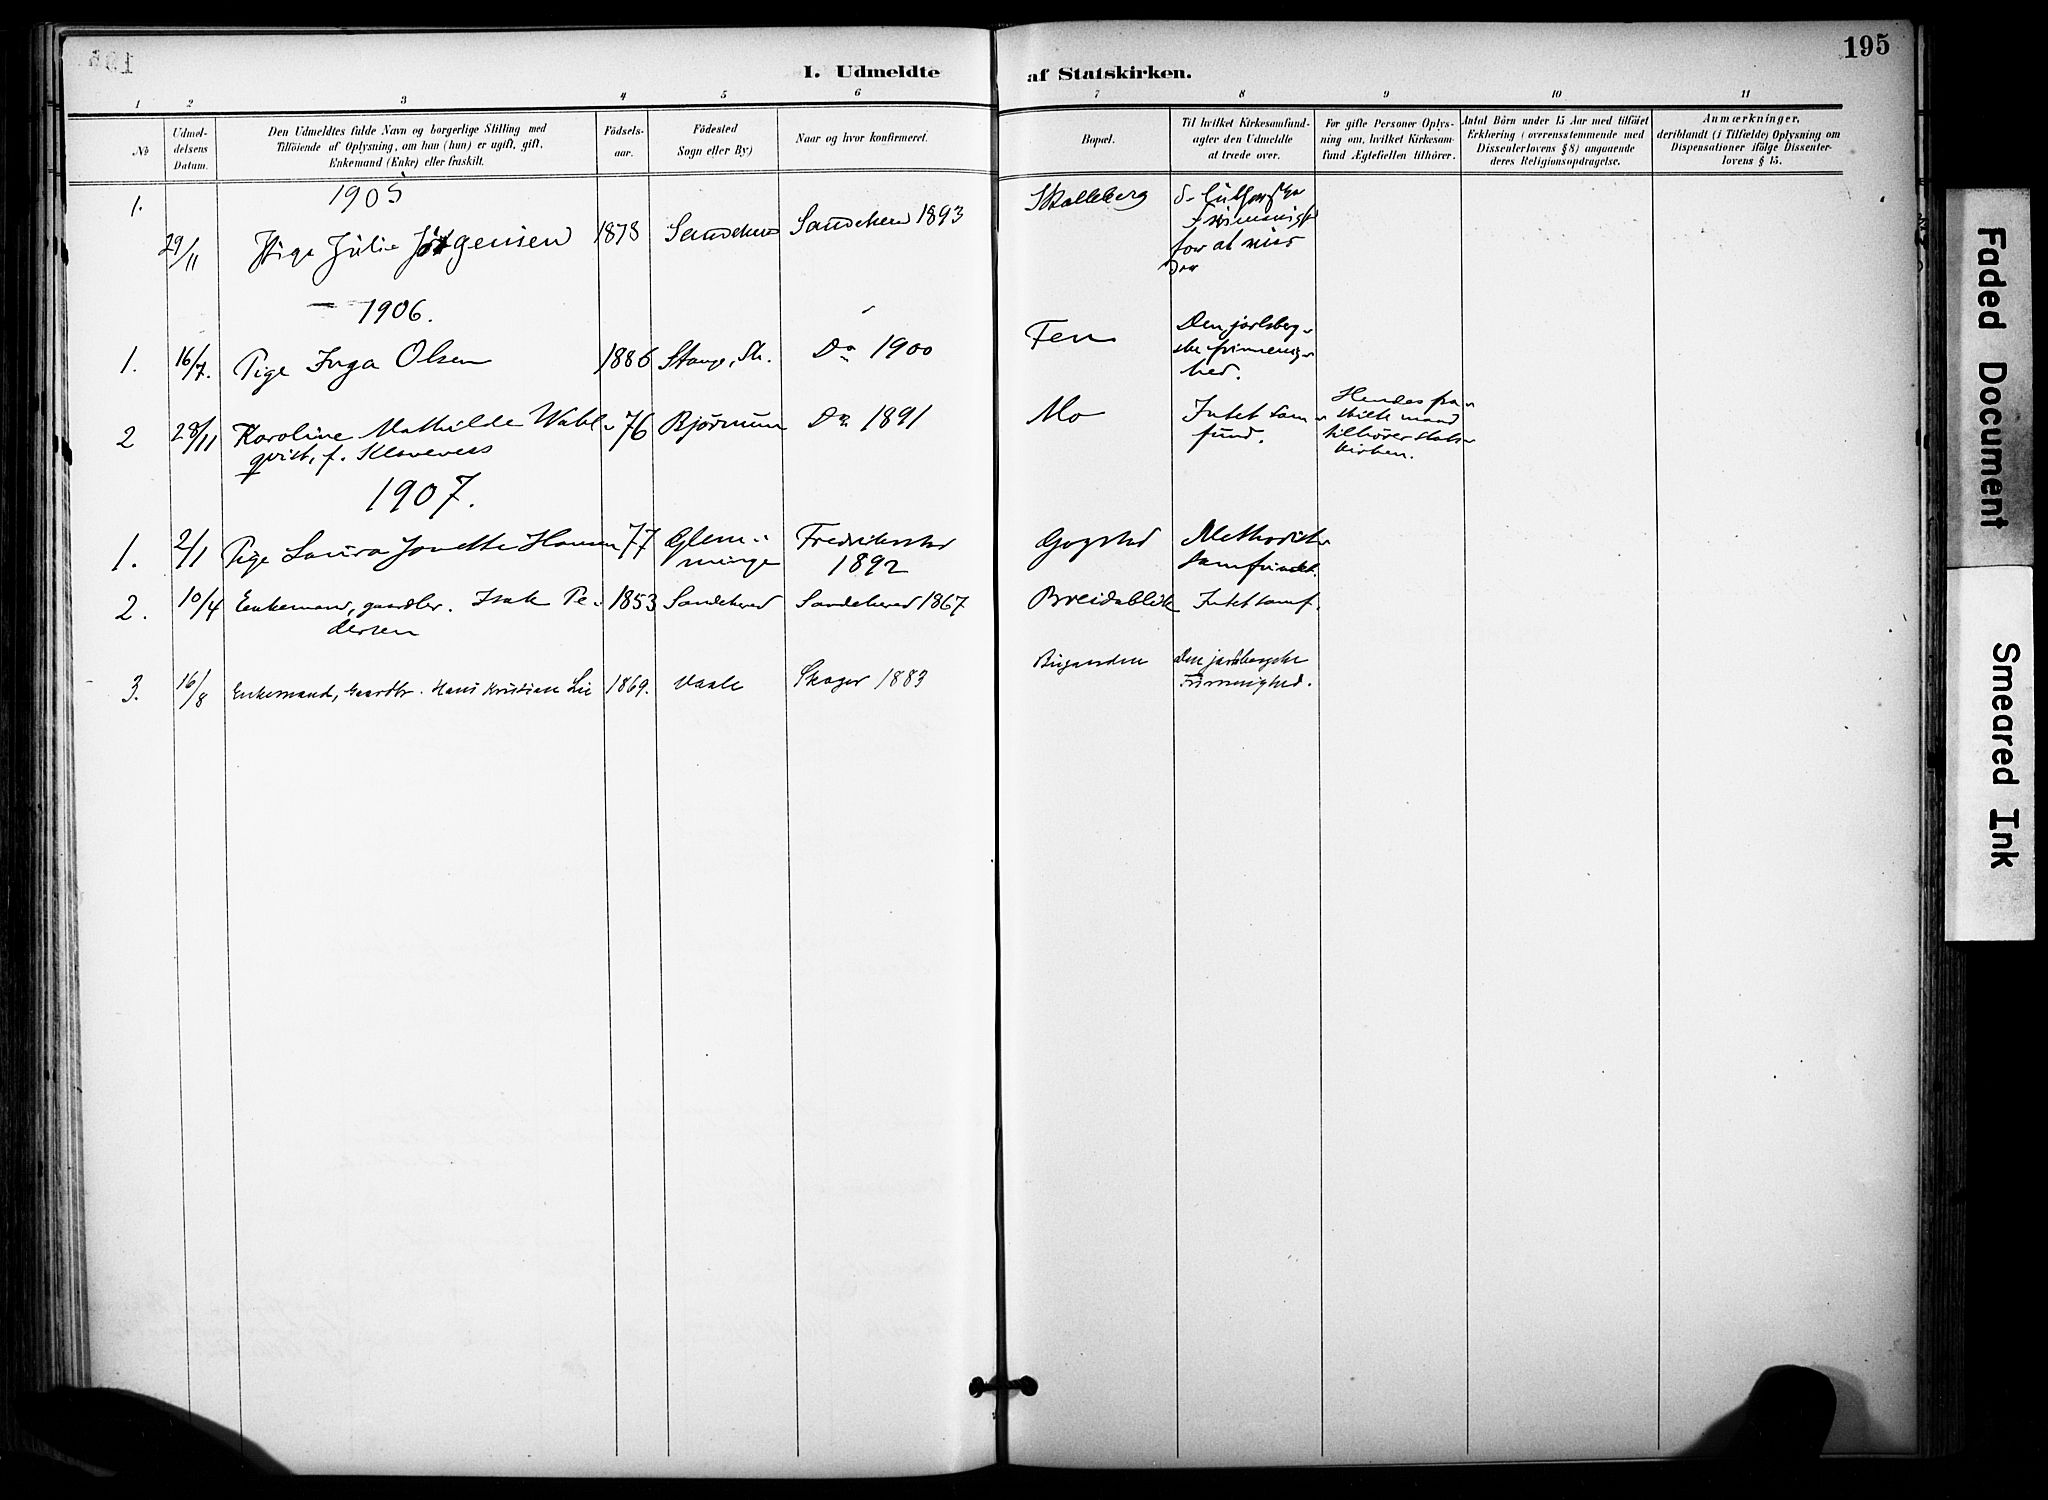 195
I. Udmeldte af Statskirken.
1 2 3 4 5 6 7 8 9 10 11
No
Udmel-
delsens
Datum.
Den Udmeldtes fulde Navn og borgerlige Stilling med
Tilföiende af Oplysning, om han (hun) er ugift, gift,
Enkemand (Enke) eller fraskilt.
Födsels-
aar.
Födested
Sogn eller By)
Naar og hvor konfirmeret.
Bopæl.
Til hvilket Kirkesamfund-
agter den Udmeldte
at træde over.
For gifte Personer Oplys-
ning om, hvilket Kirkesam-
fund Ægtefællen tilhörer.
Antal Börn under 15 Aar med tilföiet
Erklæring (overensstemmende med
Dissenterlovens § 8) angaaende
deres Religionsopdragelse.
Anmærkninger,
deriblandt (i Tilfælde) Oplysning om
Dispensationer ifölge Dissenter-
lovens § 15.
1905
1. 29/11 Pige Julie Jörgensen 1878 Sandeherred Sandeherred 1893 Skalleberg
Frimenigh
for at
1906.
1. 16/7. Pige Inga Olsen 1886 Stange, Do 1900 Fen
Den jarlsberg-
ske frimenig-
hed.
2 28/11 Karoline Mathilde Wahl- 76 Bjørnum Do 1891 Mo
qvist, f. Klaveness
Intet sam-
fund.
Hendes fra-
skilte mand
tilhører stats-
kirken.
1907.
1. 2/1 Pige Laura Jonette Hansen 77 Glem-
minge
Fredrikstad
1892
Gogstad
Methodist-
samfundet.
2. 10/4 Enkemand, gaardbr. Isak Pe- 1853 Sandeherred Sandeherred 1867 Breidablik Intet samf.
dersen
3. 16/8 Enkemand, Gaardbr. Hans Kristian Lie 1869. Vaale Skoger 1883 Bugaarden
Den jarlsbergske
Frimenighed.
Faded Document
Smeared Ink